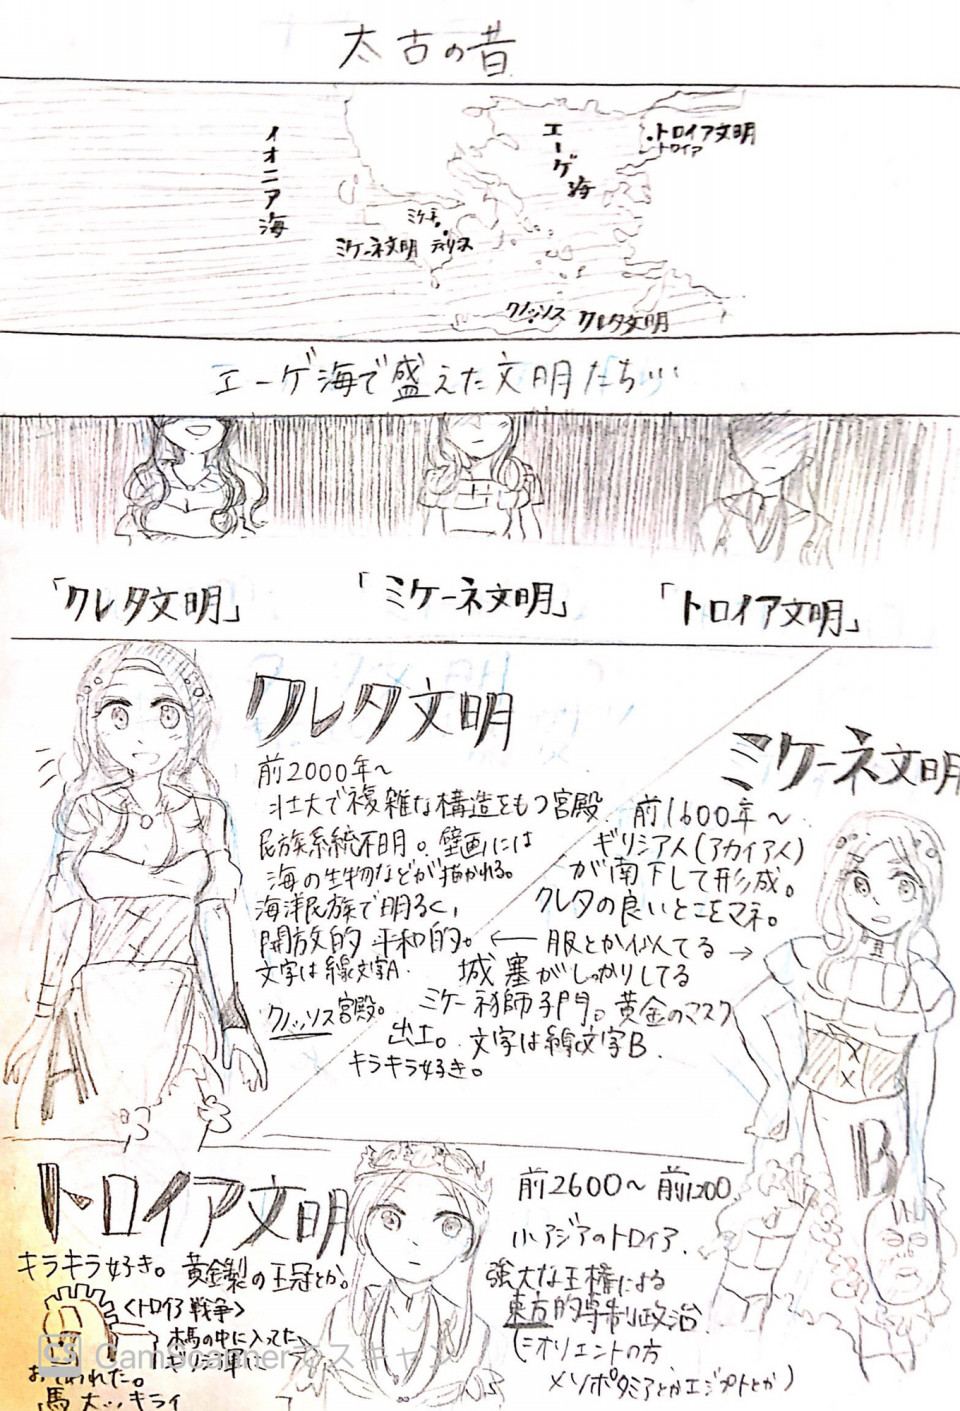 太古の昔
イオニア海
エーゲ海
トロイア文明
トロイア
ミケーネ
ミケーネ文明 ティリンス
クノッソス クレタ文明
エーゲ海で盛えた文明たち…
「クレタ文明」
「ミケーネ文明」
「トロイア文明」
クレタ文明
前2000年~
壮大で複雑な構造をもつ宮殿
民族系統不明。壁画には
海の生物などが描かれる。
海洋民族で明るく、
開放的 平和的。
文字は線文字A.
クノッソス宮殿。
A
ミケーネ文明
前1600年~
ギリシア人(アカイア人)
が南下して形成。
クレタの良いとこをマネ。
← 服とか似てる →
城塞がしっかりしてる
ミケーネ獅子門。黄金のマスク
出土。文字は線文字B.
キラキラ好き。
B
トロイア文明
キラキラ好き。黄金製の王冠とか。
<トロイア戦争>
木馬の中に入ってた
ギリシア軍に
われた。
馬 大…キライ
前2600~前1200
小アジアのトロイア.
強大な王権による
東方的専制政治.
(=オリエントの方
メソポタミアとかエジプトとか)
CS CamScannerでスキャン